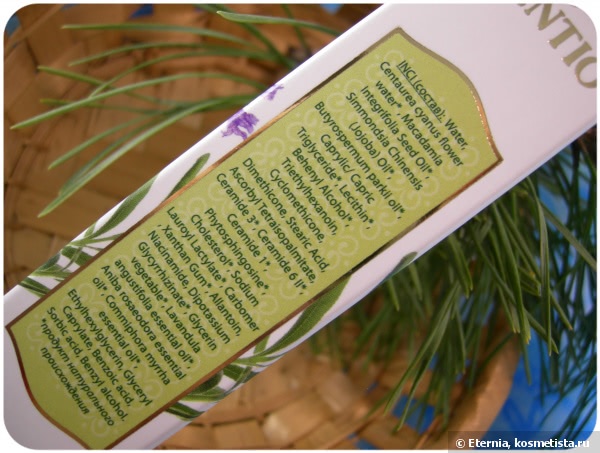 ENTIO
INCI (состав): Water,
Centaurea cyanus flower
water*, Macadamia
Integrifolia Seed Oil*,
Simmondsia Chinensis
(Jojoba) Oil*,
Butyrospermum parkii oil*,
Caprylic/ Capric
Triglyceride*, Lecithin*,
Behenyl Alcohol*,
Triethylhexanoin,
Cyclomethicone,
Dimethicone, Stearic Acid,
Ascorbyl Tetraisopalmitate,
Ceramide 3*, Ceramide 6 II*,
Ceramide 1*,
Phytosphingosine*,
Cholesterol*, Sodium
Lauroyl Lactylate*, Carbomer
Xanthan Gum*, Allantoin,
Niacinamide, Dipotassium
Glycyrrhizinate*, Glycerin
vegetable*, Lavandula
angustifolia essential oil*,
Aniba rosaeodora essential
oil*, Commiphora myrrha
essential oil*,
Ethylhexylglycerin, Glyceryl
Caprylate, Benzoic acid,
Sorbic acid, Benzyl alcohol.
*продукт натурального
происхождения
© Eternia, kosmetista.ru